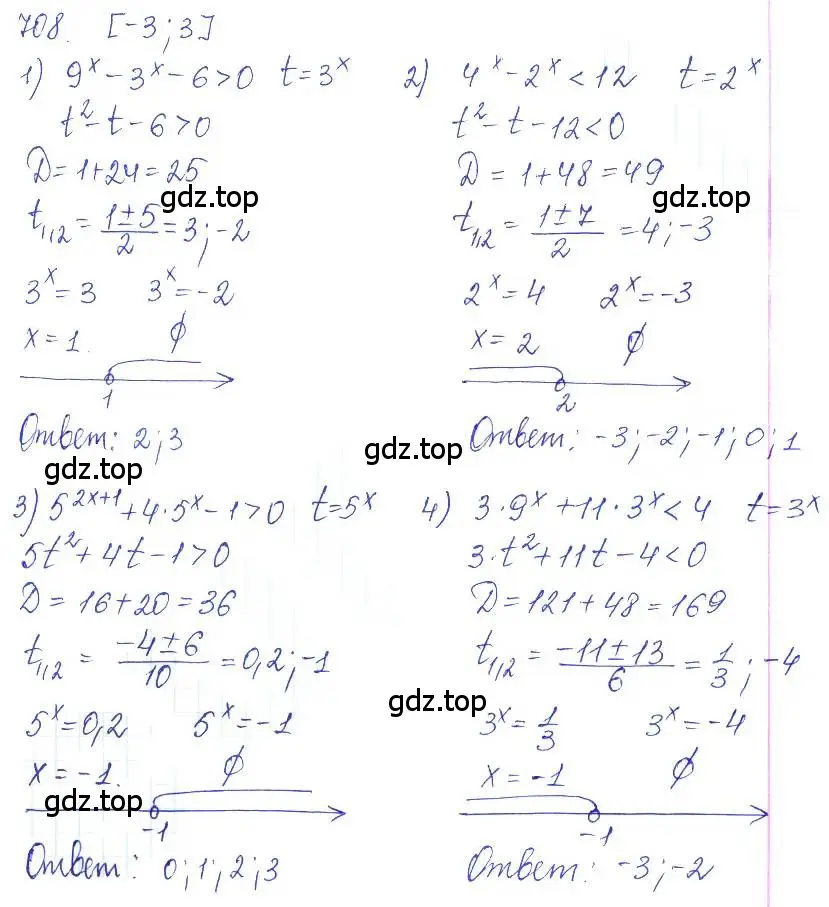 708. [-3; 3]
1) 9^x - 3^x - 6 > 0 t = 3^x
t² - t - 6 > 0
D = 1 + 24 = 25
gdz.top
t₁,₂ = (1 ± 5)/2 = 3; -2
3^x = 3 3^x = -2
x = 1. ∅
1
Ответ: 2; 3
gdz.top
2) 4^x - 2^x < 12 t = 2^x
t² - t - 12 < 0
D = 1 + 48 = 49
gdz.top
t₁,₂ = (1 ± 7)/2 = 4; -3
2^x = 4 2^x = -3
x = 2 ∅
2
Ответ: -3; -2; -1; 0; 1
gdz.top
3) 5^(2x+1) + 4·5^x - 1 > 0 t = 5^x
5t² + 4t - 1 > 0
D = 16 + 20 = 36
t₁,₂ = (-4 ± 6)/10 = 0,2; -1
5^x = 0,2 5^x = -1
x = -1. ∅
gdz.top
-1
Ответ: 0; 1; 2; 3
4) 3·9^x + 11·3^x < 4 t = 3^x
3·t² + 11t - 4 < 0
D = 121 + 48 = 169
t₁,₂ = (-11 ± 13)/6 = 1/3; -4
gdz.top
3^x = 1/3 3^x = -4
x = -1 ∅
-1
Ответ: -3; -2